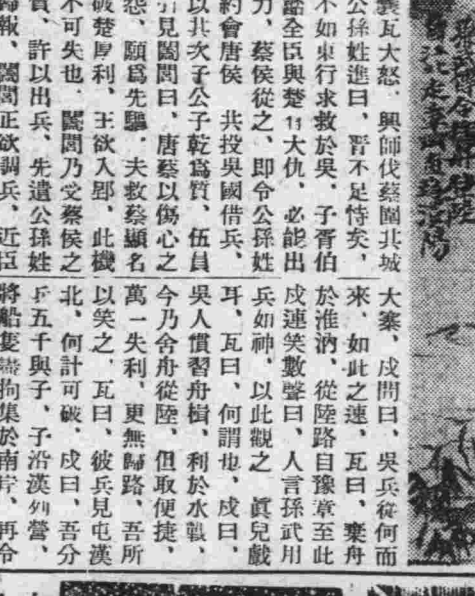 囊瓦大怒、興師伐蔡圍其城
公孫姓進曰、晉不足恃矣、
不如東行求救於吳、子胥伯
嚭全臣與楚大仇、必能出
力、蔡侯從之、即令公孫姓
約會唐侯 共投吳國借兵、
以其次子公子乾爲質、伍員
引見闔閭曰、唐蔡以傷心之
怨、願爲先驅、夫救蔡顯名
破楚厚利、王欲入郢、此機
不可失也、闔閭乃受蔡侯之
質、許以出兵、先遣公孫姓
歸報、闔閭正欲調兵、近臣
大寨、戍問曰、吳兵從何而
來、如此之速、瓦曰、棄舟
於淮汭、從陸路自豫章至此
戍連笑數聲曰、人言孫武用
兵如神、以此觀之 眞兒戲
耳、瓦曰、何謂也、戍曰、
吳人慣習舟楫、利於水戰、
今乃舍舟從陸、但取便捷、
萬一失利、更無歸路、吾所
以笑之、瓦曰、彼兵見屯漢
北、何計可破、戍曰、吾分
兵五千與子、子沿漢列營、
將船隻盡拘集於南岸、再令